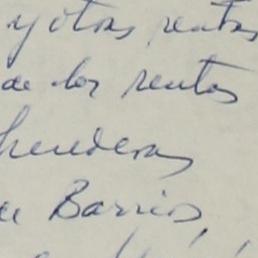 y otras rentas
de las rentas
herederas
de Barrios,